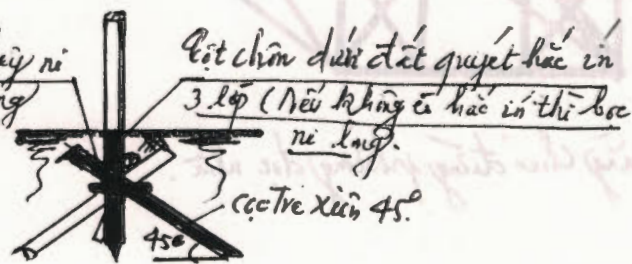 ni
Cột chôn dưới đất quyét hắc ín
3 lớp (Nếu không có hắc ín thì bọc
ni lông.
cọc Tre xiên 45°.
45°